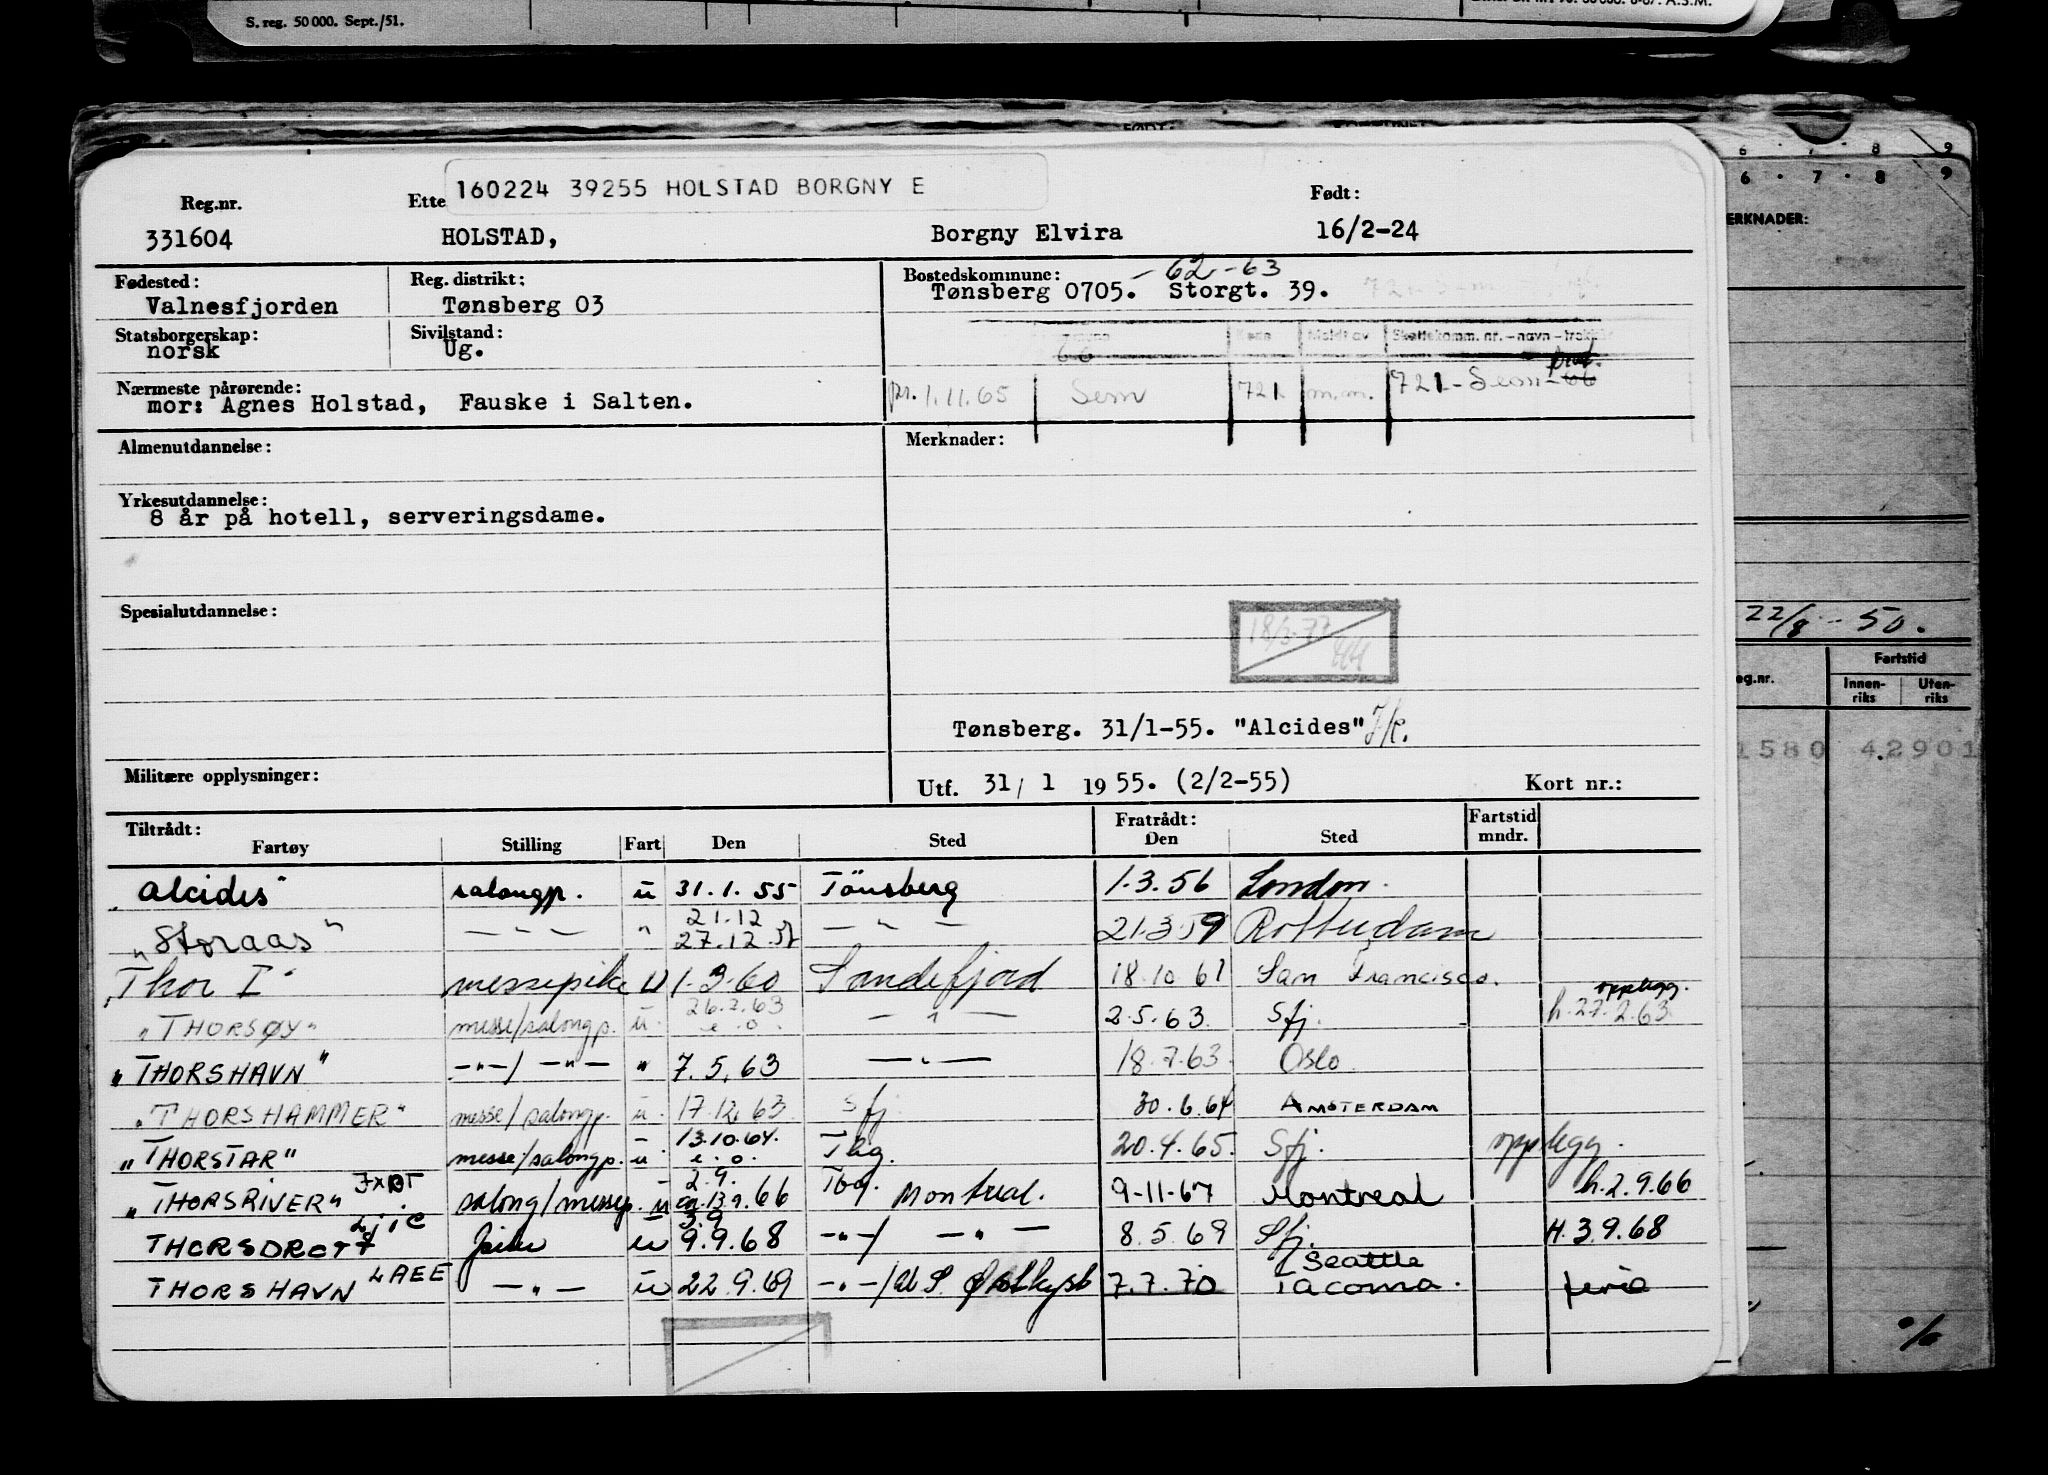 S. reg. 50 000. Sept./51.
160224 39255 HOLSTAD BORGNY E
Reg.nr. Ette Født:
331604 HOLSTAD, Borgny Elvira 16/2-24
Fødested: Reg. distrikt: Bostedskommune: - 62-63
Valnesfjorden Tønsberg 03 Tønsberg 0705. Storgt. 39.
Statsborgerskap: Sivilstand:
norsk Ug.
66 Skattekomm. nr. - navn -
Nærmeste pårørende:
mor: Agnes Holstad, Fauske i Salten. 1.11.65 Sem 721 m.m. 721 - Sem - 66
Almenutdannelse: Merknader:
Yrkesutdannelse:
8 år på hotell, serveringsdame.
Spesialutdannelse:
Tønsberg. 31/1-55. "Alcides"
Militære opplysninger: Utf. 31/ 1 1955. (2/2-55) Kort nr.:
Tiltrådt: Fratrådt: Fartstid
Fartøy Stilling Fart Den Sted Den Sted mndr.
"Alcides" salongp. u 31.1.55 Tönsberg 1.3.56 London.
21.12
"Storaas" -"- " 27.12 -"- 21.3.59 Rotterdam
"Thor I" messepike U 1.3.60 Sandefjord 18.10 61 San Francisco.
26.2.63 opplegg.
"THORSØY" messe/salongp. u. e.o. -"- 2.5.63 Sfj. h.27.2.63
"THORSHAVN" -"-/-"- " 7.5.63 -"- 18.7.63. Oslo
"THORSHAMMER" messe/salongp. u. 17.12.63 Sfj 30.6.64 AMSTERDAM
13.10.64.
"THORSTAR" messe/salongp. u e.o. Tbg. 20.4.65. Sfj. opplegg.
2.9.
"THORSRIVER" JXBT salong/messep. u 13.9.66 Tbg. Montreal. 9-11-67 Montreal h.2.9.66
3.9
THORSDROTT LJIC u 9.9.68 -"-/ -"- 8.5.69 Sfj. H.3.9.68
THORSHAVN LAEE -"- u 22.9.69 -"-/U.S. Østkyst 7.7.70 Seattle
Tacoma. ferie
ERKNADER:
22/8 - 50.
Fartstid
eg.nr. Innen-riks Uten-riks
1580 42901
%